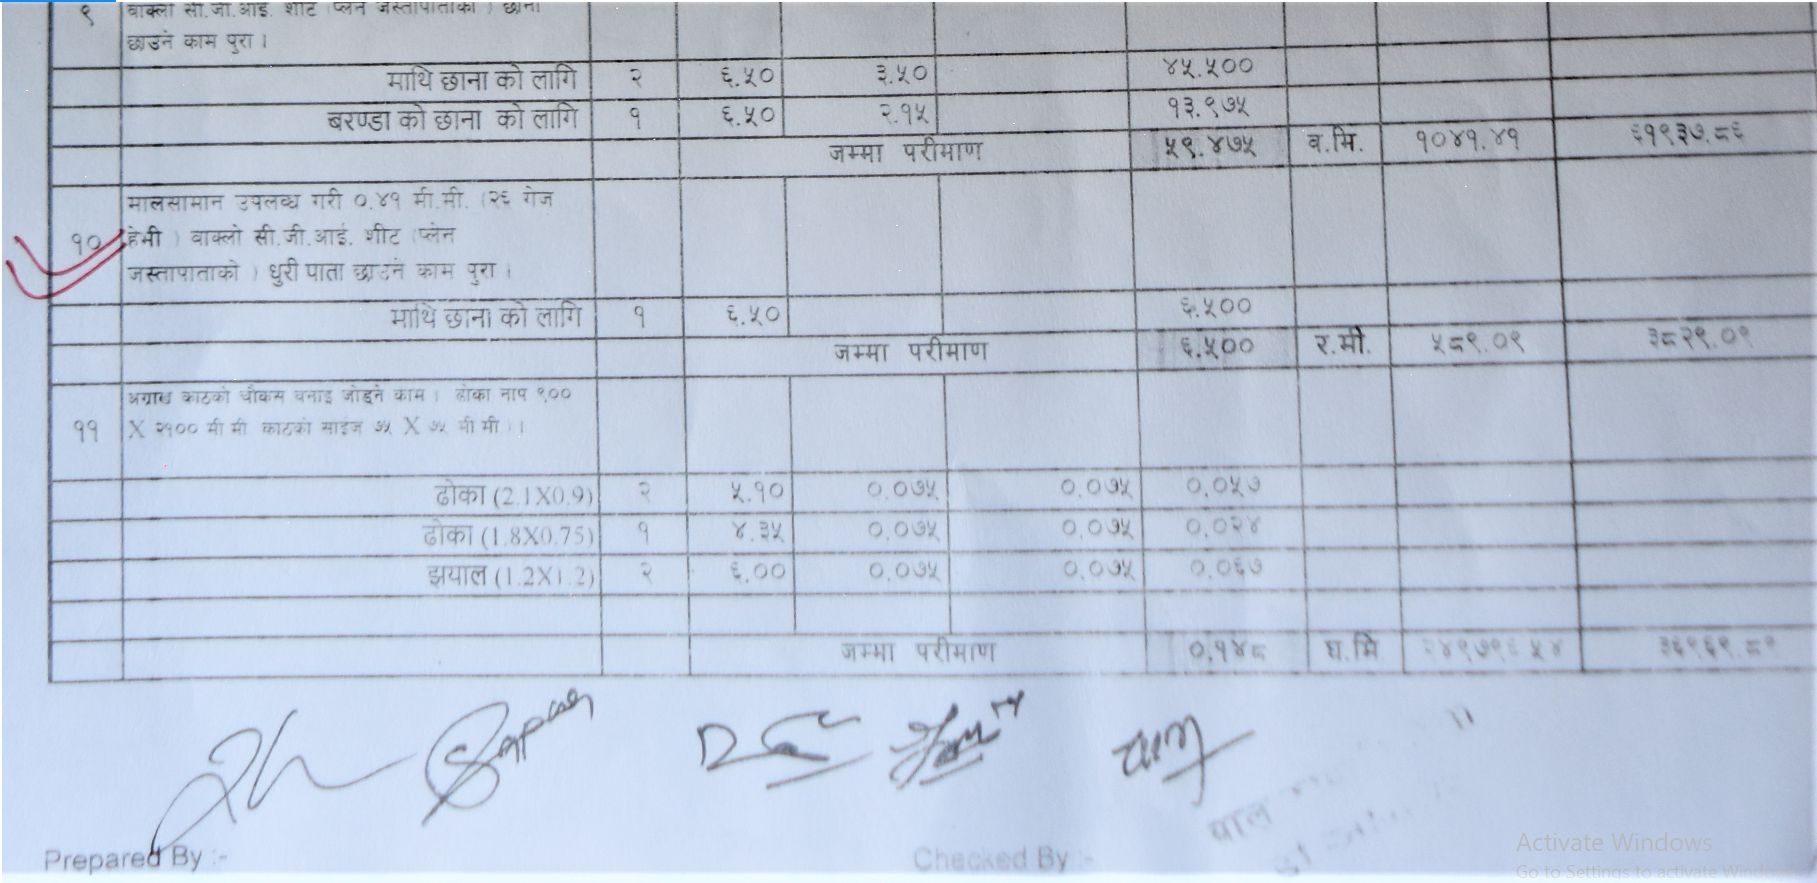 ९ वाक्लो सी.जी.आई. शीट (प्लेन जस्तापाताको ) छाना
छाउने काम पुरा ।
माथि छाना को लागि २ ६.५० ३.५० ४५.५००
बरण्डा को छाना को लागि १ ६.५० २.१५ १३.९७५
जम्मा परीमाण ५९.४७५ व.मि. १०४१.४१ ६१९३७.८६
मालसामान उपलब्ध गरी ०.४१ मी.मी. (२६ गेज
१० हेभी ) वाक्लो सी.जी.आई. शीट (प्लेन
जस्तापाताको ) धुरी पाता छाउने काम पुरा ।
माथि छाना को लागि १ ६.५० ६.५००
जम्मा परीमाण ६.५०० र.मी. ५८९.०९ ३८२९.०९
अग्राख काठको चौकस बनाइ जोड्ने काम । ढोका नाप ९००
११ X २१०० मी मी काठको साइज ७५ X ७५ मी मी ) ।
ढोका (2.1X0.9) २ ५.१० ०.०७५ ०.०७५ ०.०५७
ढोका (1.8X0.75) १ ४.३५ ०.०७५ ०.०७५ ०.०२४
झयाल (1.2X1.2) २ ६.०० ०.०७५ ०.०७५ ०.०६७
जम्मा परीमाण ०.१४८ घ.मि २४९७९६.५४ ३६९६९.८९
Prepared By :- Checked By :-
Activate Windows
Go to Settings to activate Windows